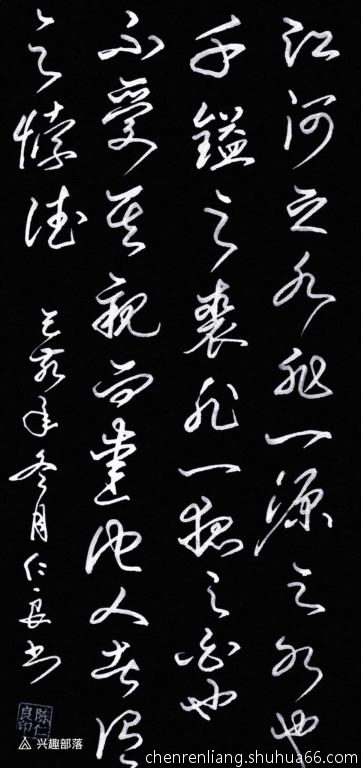 江河之水非一源之水也
千鎰之裘非一狐之白也
不愛其親而他人者谓
之悖德
己亥年冬月仁良书
陈仁良印
兴趣部落
chenrenliang.shuhua66.com